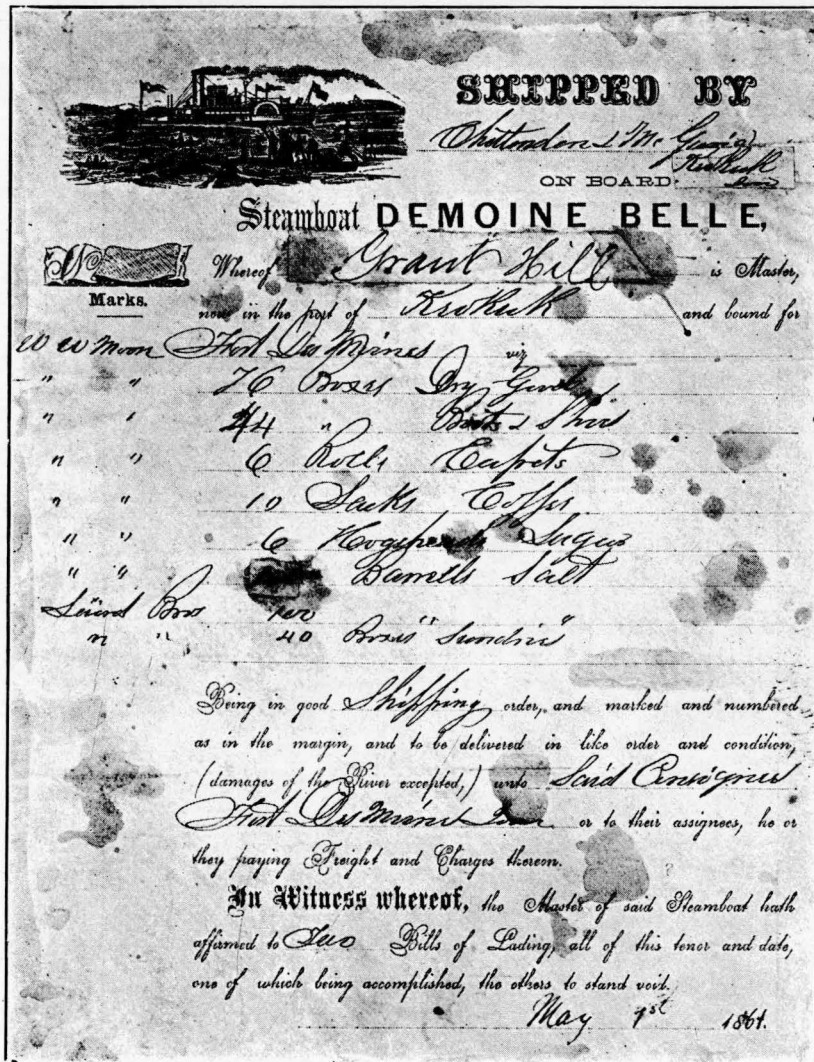 SHIPPED BY
Chittenden & Mc Gavic
Keokuk
ON BOARD
Steamboat DEMOINE BELLE,
Marks.
Whereof Grant Hill is Master,
now in the port of Keokuk and bound for
W W Moon Fort Des Moines viz
" " 76 Boxes Dry Goods
" " 24 " Boots & Shoes
" " 6 Rolls Carpets
" " 10 Sacks Coffee
" " 6 Hogsheads Sugar
" " Barrels Salt
Bros 100
" " 40 Boxes "Sundries"
Being in good Shipping order, and marked and numbered
as in the margin, and to be delivered in like order and condition,
(damages of the River excepted,) unto Said Consignees
Fort Des Moines Iowa or to their assignees, he or
they paying Freight and Charges thereon.
In Witness whereof, the Master of said Steamboat hath
affirmed to Two Bills of Lading, all of this tenor and date,
one of which being accomplished, the others to stand void.
May 1st 1861.